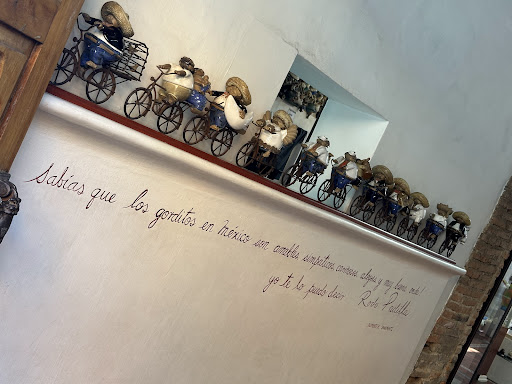 Sabias que los gorditos en México son amables simpaticos, cariñosos, alegres y muy buena onda!
yo te lo puedo decir Rodo Padilla